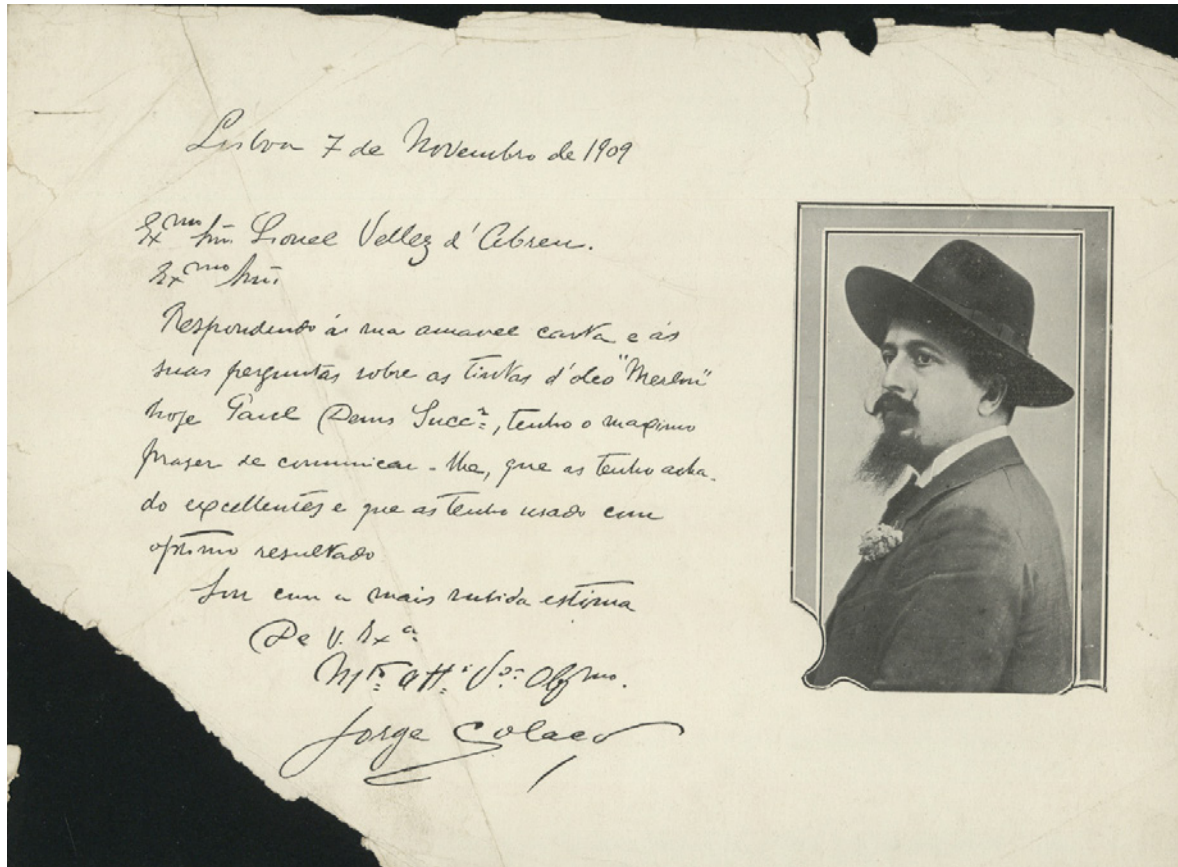 Lisboa 7 de Novembro de 1909
Exmo Snr. Lionel Vellez d'Abreu.
Exmo Snr.
Respondendo á sua amavel carta e ás
suas perguntas sobre as tintas d'oleo "Merlin"
hoje Paul Denis Succr, tenho o maximo
prazer de comunicar-lhe, que as tenho acha-
do excellentes e que as tenho usado com
optimo resultado
Sou com a mais subida estima
De V. Exa
Mto Atto Vor Obgmo.
Jorge Colaço